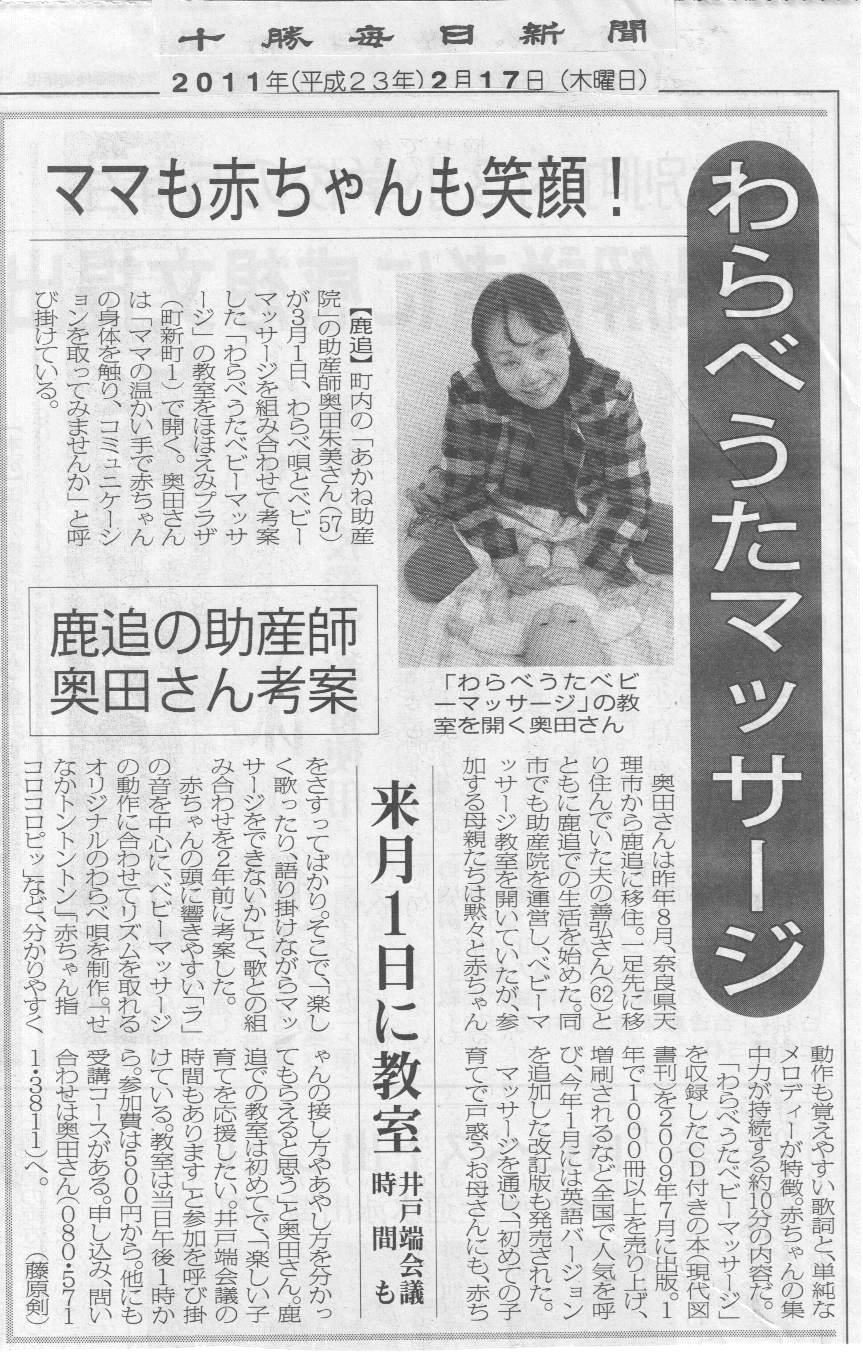 十勝毎日新聞
2011年(平成23年)2月17日(木曜日)
わらべうたマッサージ
ママも赤ちゃんも笑顔！
【鹿追】町内の「あかね助産
院」の助産師奥田朱美さん(57)
が3月1日、わらべ唄とベビー
マッサージを組み合わせて考案
した「わらべうたベビーマッサ
ージ」の教室をほほえみプラザ
(町新町1)で開く。奥田さん
は「ママの温かい手で赤ちゃん
の身体を触り、コミュニケーシ
ョンを取ってみませんか」と呼
び掛けている。
「わらべうたベビ
ーマッサージ」の教
室を開く奥田さん
鹿追の助産師
奥田さん考案
来月1日に教室
井戸端会議
時間も
奥田さんは昨年8月、奈良県天
理市から鹿追に移住。一足先に移
り住んでいた夫の善弘さん(62)と
ともに鹿追での生活を始めた。同
市でも助産院を運営し、ベビーマ
ッサージ教室を開いていたが、参
加する母親たちは黙々と赤ちゃん
をさすってばかり。そこで、「楽し
く歌ったり、語り掛けながらマッ
サージをできないか」と、歌との組
み合わせを2年前に考案した。
赤ちゃんの頭に響きやすい「ラ」
の音を中心に、ベビーマッサージ
の動作に合わせてリズムを取れる
オリジナルのわらべ唄を制作。「せ
なかトントントン」「赤ちゃん指
コロコロピッ」など、分かりやすく
動作も覚えやすい歌詞と、単純な
メロディーが特徴。赤ちゃんの集
中力が持続する約10分の内容だ。
「わらべうたベビーマッサージ」
を収録したCD付きの本(現代図
書刊)を2009年7月に出版。1
年で1000冊以上を売り上げ、
増刷されるなど全国で人気を呼
び、今年1月には英語バージョン
を追加した改訂版も発売された。
マッサージを通じ、「初めての子
育てで戸惑うお母さんにも、赤ち
ゃんの接し方やあやし方を分かっ
てもらえると思う」と奥田さん。鹿
追での教室は初めてで、「楽しい子
育てを応援したい。井戸端会議の
時間もあります」と参加を呼び掛
けている。教室は当日午後1時か
ら。参加費は500円から。他にも
受講コースがある。申し込み、問い
合わせは奥田さん(080・571
1・3811)へ。
(藤原剣)